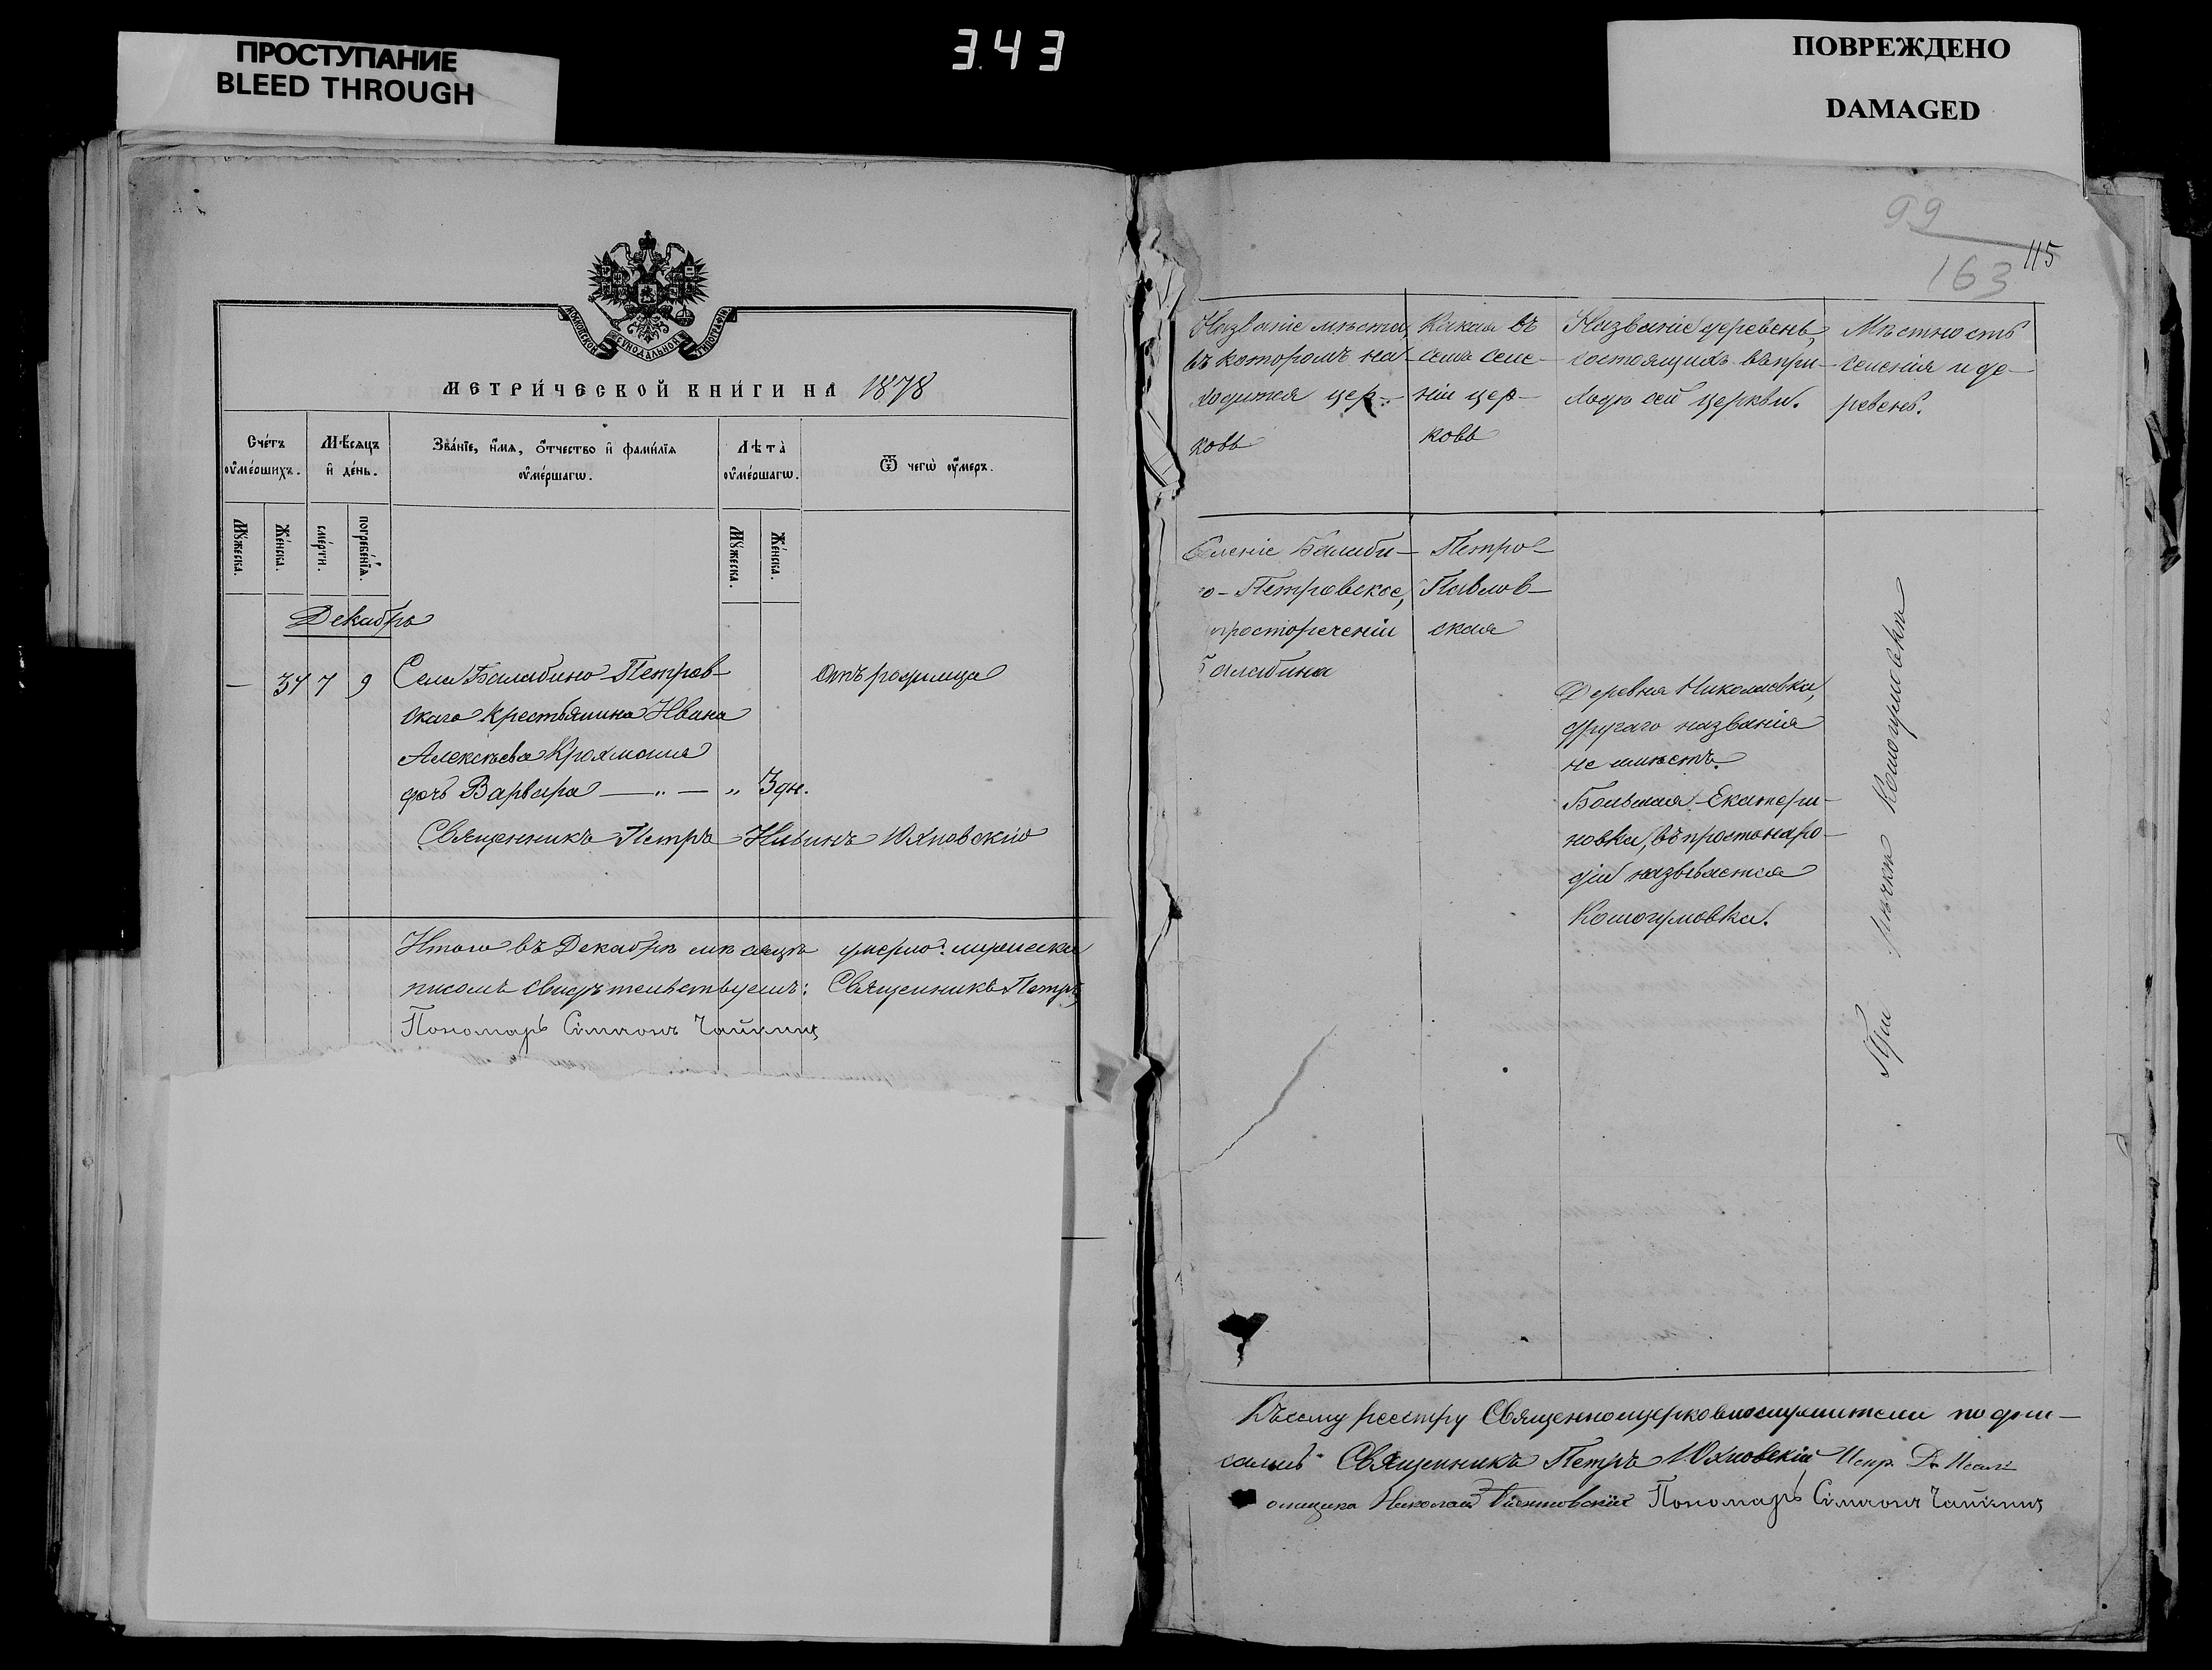 ПРОСТУПАНИЕ
BLEED THROUGH
3.43
ПОВРЕЖДЕНО
DAMAGED
МОСКОВСКОЙ СѴНОДАЛЬНОЙ ТИПОГРАФІИ
МЕТРИ́ЧЕСКОЙ КНИ́ГИ НА 1878
Сче́тъ
оу҆ме́ршихъ.
Мѣ́сяцъ
и҆ де́нь.
Зва́нїе, и҆́мѧ, ѻ҆́тчество и҆ фами́лїѧ
оу҆ме́ршагѡ.
Лѣ́та̀
оу҆ме́ршагѡ.
Ѿ чегѡ̀ оу҆́меръ.
Мꙋ́жеска.
Же́нска.
сме́рти.
погребе́нїѧ.
Мꙋ́жеска.
Же́нска.
Декабрь
— 34 7 9 Села Балабино-Петров- отъ родимца
скаго крестьянина Ивана
Алексѣева Крохмаля
дочь Варвара — „ — „ 3 дн.
Священникъ Петръ Ильинъ Юхновскій
Итого въ Декабрѣ мѣсяцѣ умерло: мужеска
писомъ свидѣтельствуемъ: Священникъ Петръ
Пономарь Сімеонъ Чайкинъ
99
163
115
Названіе мѣста,
въ которомъ на-
ходится цер-
ковь
Какая въ
семъ селе-
ніи цер-
ковь
Названіе деревень,
состоящихъ въ при-
ходѣ сей церкви.
Мѣстность
селенія и де-
ревень.
Селеніе Балаби-
но-Петровское,
просторечіи
Балабина
Петро-
Павлов-
ская
Деревня Николаевка,
другаго названія
не имѣетъ.
Большая-Екатери-
новка, въ простонаро-
діи называется
Кошогумовка.
При рѣчкѣ
Къ сему реестру Священноцерковнослужители подпи-
сались Священникъ Петръ Юхновскій Испр. Д. Псал
омщика Николай Пономарь Сімеонъ Чайкинъ